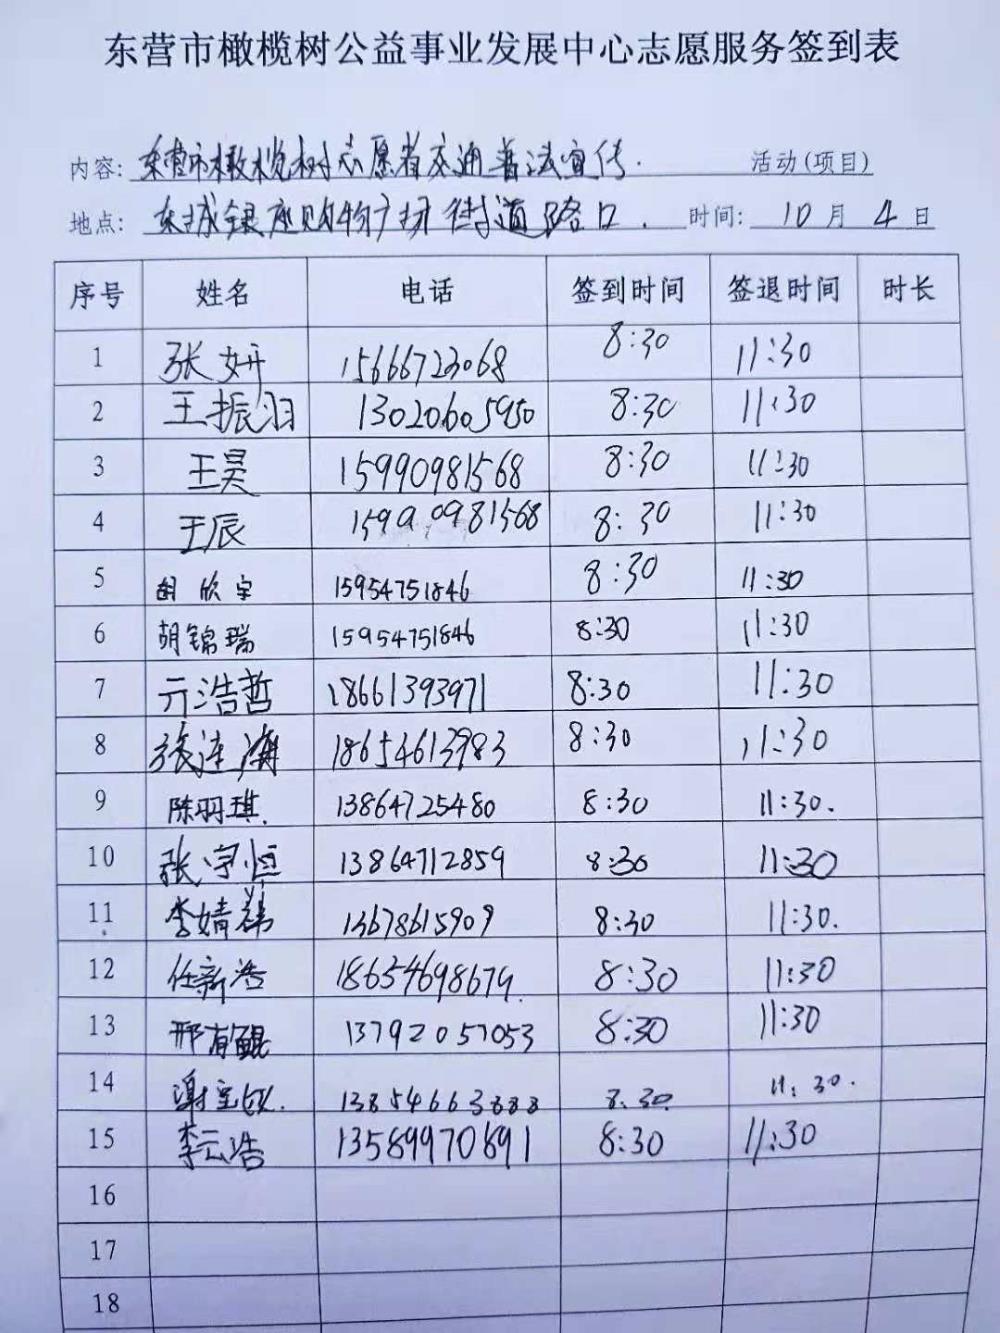 东营市橄榄树公益事业发展中心志愿服务签到表
内容: 东营市橄榄树志愿者交通普法宣传. 活动(项目)
地点: 东城银座购物广场街道路口. 时间: 10 月 4 日
序号 姓名 电话 签到时间 签退时间 时长
1 张妍 15666723068 8:30 11:30
2 王振羽 13020605950 8:30 11:30
3 王昊 15990981568 8:30 11:30
4 王辰 15990981568 8:30 11:30
5 胡欣宇 15954751846 8:30 11:30
6 胡锦瑞 15954751846 8:30 11:30
7 亓浩哲 18661393971 8:30 11:30
8 张连海 18654613983 8:30 11:30
9 陈羽琪. 13864725480 8:30 11:30.
10 张宇恒 13864712859 8:30 11:30
11 李婧 13678615909 8:30 11:30.
12 任新浩 18654698679. 8:30 11:30
13 邢有鲲 13792057053 8:30 11:30
14 谢宝 13854663888 8:30. 11:30.
15 李云浩 13589970891 8:30 11:30
16
17
18